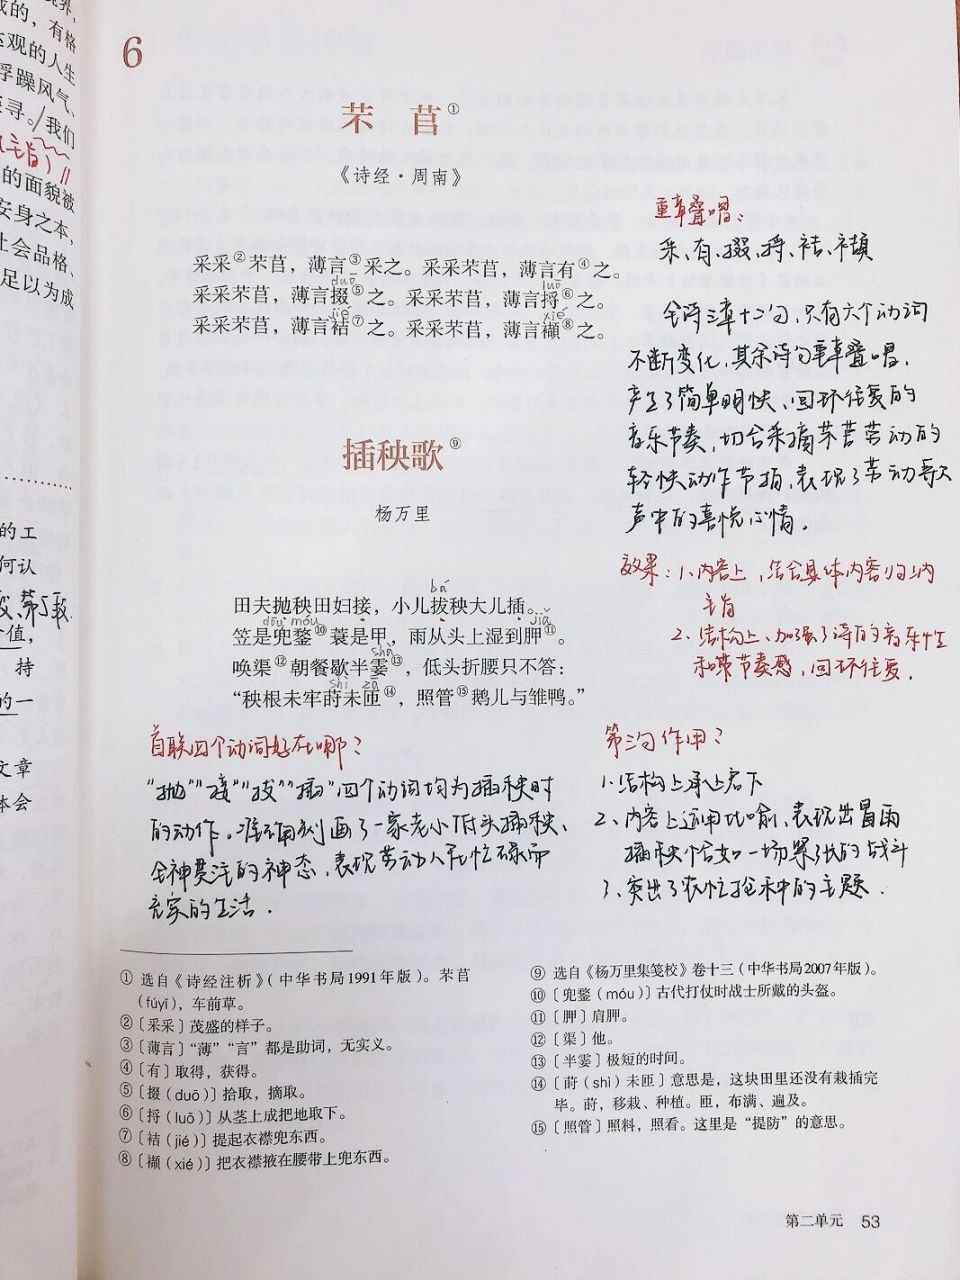 界,
成的，有格
乐观的人生
浮躁风气、
寻。/我们
的面貌被
安身之本，
社会品格、
足以为成
的工
何认
第5段
值，
持
的一
文章
体会
6
芣苢①
《诗经·周南》
采采②芣苢，薄言③采之。采采芣苢，薄言有④之。
duō luō
采采芣苢，薄言掇⑤之。采采芣苢，薄言捋⑥之。
jié xié
采采芣苢，薄言袺⑦之。采采芣苢，薄言襭⑧之。
重章叠唱：
采、有、掇、捋、袺、襭
全诗三章十二句，只有六个动词
不断变化，其余诗句重章叠唱，
产生了简单明快、回环往复的
音乐节奏，切合采摘芣苢劳动的
轻快动作节拍，表现了劳动者欢
声中的喜悦心情。
效果：1、内容上，结合具体内容归纳
主旨
2、结构上、加强了诗的音乐性
和节奏感，回环往复。
插秧歌⑨
杨万里
bá
田夫抛秧田妇接，小儿拔秧大儿插。
dōu móu jiǎ
笠是兜鍪⑩蓑是甲，雨从头上湿到胛⑪。
shà
唤渠⑫朝餐歇半霎⑬，低头折腰只不答：
shì zā
“秧根未牢莳未匝⑭，照管⑮鹅儿与雏鸭。”
首联四个动词好在哪？
“抛”“接”“拔”“插”四个动词均为插秧时
的动作。准确刻画了一家老小低头插秧、
全神贯注的神态，表现劳动人民忙碌而
充实的生活．
第三句作用？
1、结构上承上启下
2、内容上运用比喻、表现出冒雨
插秧恰如一场紧张的战斗
3、突出了农忙抢种的主题．
① 选自《诗经注析》（中华书局1991年版）。芣苢
（fúyǐ），车前草。
②〔采采〕茂盛的样子。
③〔薄言〕“薄”“言”都是助词，无实义。
④〔有〕取得，获得。
⑤〔掇（duō）〕拾取，摘取。
⑥〔捋（luō）〕从茎上成把地取下。
⑦〔袺（jié）〕提起衣襟兜东西。
⑧〔襭（xié）〕把衣襟掖在腰带上兜东西。
⑨ 选自《杨万里集笺校》卷十三（中华书局2007年版）。
⑩〔兜鍪（móu）〕古代打仗时战士所戴的头盔。
⑪〔胛〕肩胛。
⑫〔渠〕他。
⑬〔半霎〕极短的时间。
⑭〔莳（shì）未匝〕意思是，这块田里还没有栽插完
毕。莳，移栽、种植。匝，布满、遍及。
⑮〔照管〕照料，照看。这里是“提防”的意思。
第二单元 53